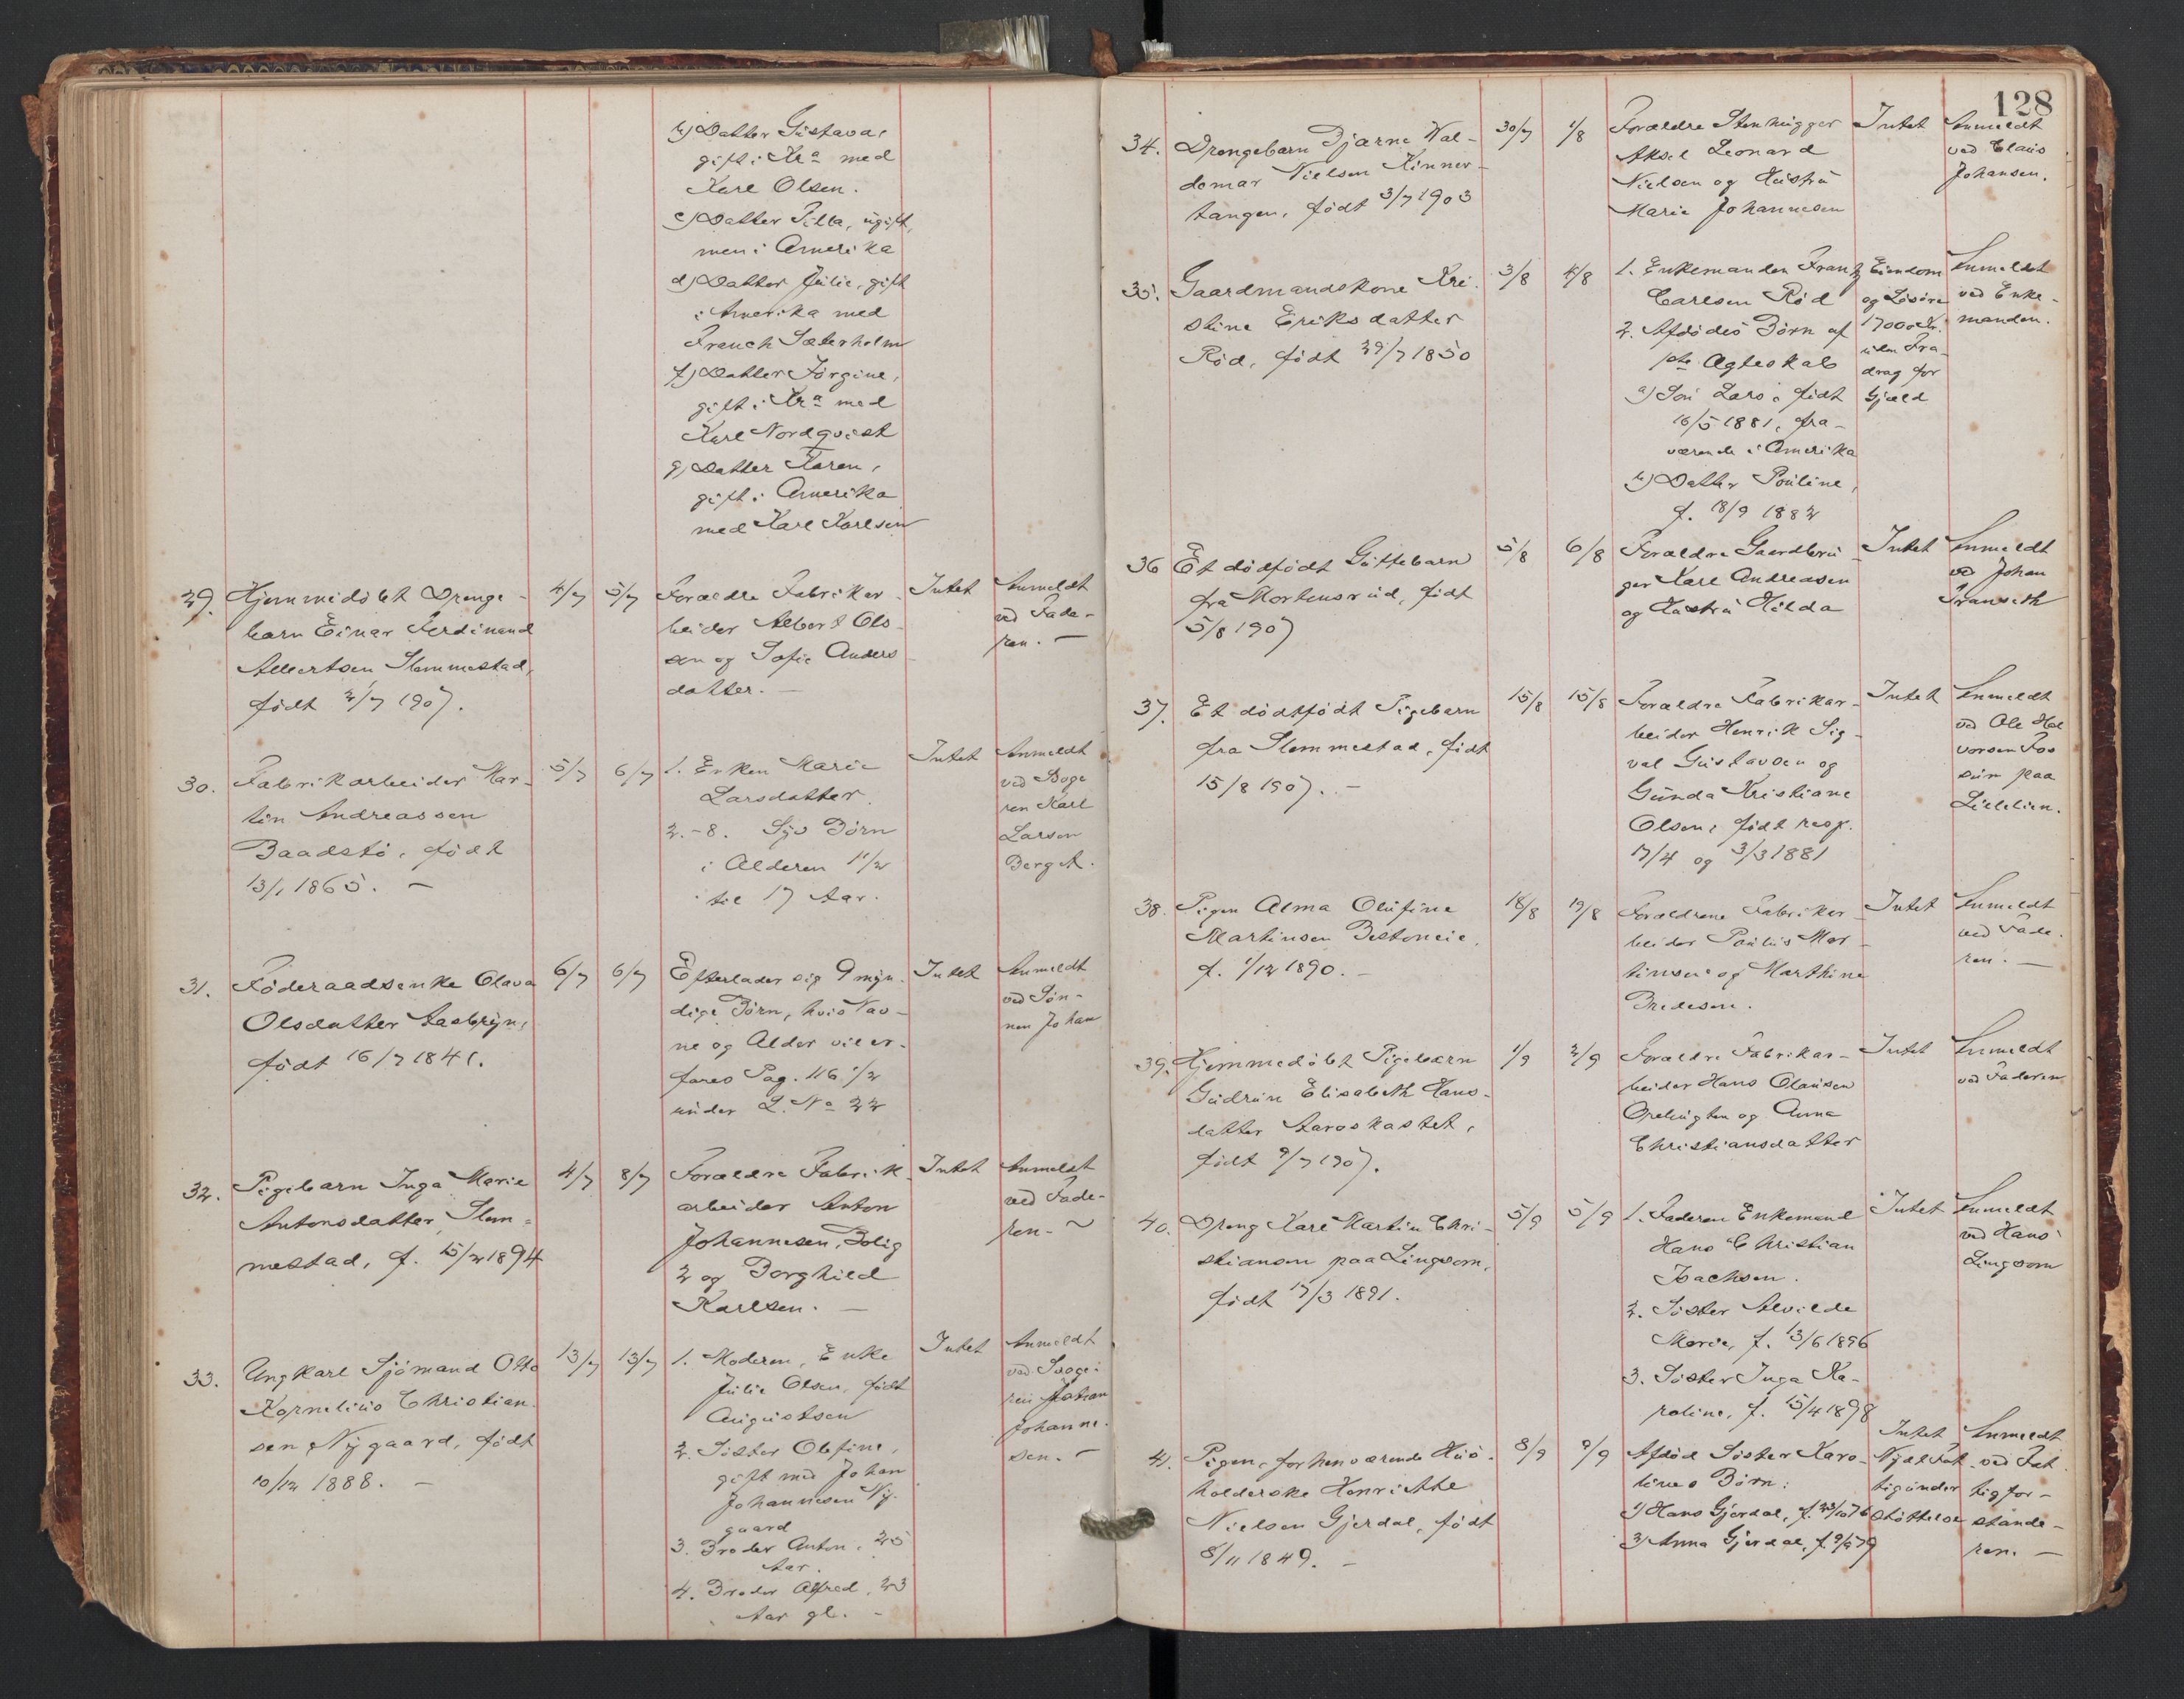 b) Datter Gustava,
gift i Kr.a med
Karl Olsen.
c) Datter Petra, ugift,
men i Amerika
d) Datter Julie, gift
i Amerika med
Franch Sæterholm
f) Datter Jørgine,
gift i Kr.a med
Karl Nordqvist
g) Datter Karen,
gift i Amerika
med Karl Karlsen
29. Hjemmedøbt Drenge-
barn Einar Ferdinand
Albertsen Slemmestad,
født 2/7 1907.
4/7 5/7
Forældre Fabrikar-
beider Albert Ols-
sen og Sofie Anders
datter. —
Intet
Anmeldt
ved Fade-
ren. —
30. Fabrikarbeider Mar-
tin Andreassen
Baadstø, født
13/1 1865. —
5/7 6/7
1. Enken Marie
Larsdatter.
2.-8. Syv Børn
i Alderen 1 1/2
til 17 Aar.
Intet
Anmeldt
ved Svoge
ren Karl
Larsen
Berget.
31. Føderaadsenke Olava
Olsdatter Aasbryn,
født 16/7 1841.
6/7 6/7
Efterlader sig 9 myn-
dige Børn, hvis Nav-
ne og Alder vil er-
fares Pag. 116 1/2
under L. No 22
Intet
Anmeldt
ved Søn-
nen Johan
32. Pigebarn Inga Marie
Antonsdatter Slem-
mestad, f. 15/2 1894
4/7 8/7
Forældre Fabrik-
arbeider Anton
Johannesen, Bolig
2 og Borghild
Karlsen. —
Intet
Anmeldt
ved Fade-
ren. —
33. Ungkarl Sjømand Otto
Kornelius Christian-
sen Nygaard, født
10/12 1888. —
13/7 13/7
1. Moderen, Enke
Julie Olsen, født
Augustsen
2. Søster Olefine,
gift med Johan
Johannesen Ny-
gaard
3. Broder Anton, 25
Aar.
4. Broder Alfred, 23
Aar gl. —
Intet
Anmeldt
ved Svoge-
ren Johan
Johanne-
sen. —
128
34. Drengebarn Bjarne Wal-
demar Nielsen Kinner-
tangen, født 3/7 1903
30/7 1/8
Forældre Stenhugger
Aksel Leonard
Nielsen og Hustru
Marie Johannesen
Intet
Anmeldt
ved Claus
Johansen.
35. Gaardmandskone Kri-
stine Eriksdatter
Rød, født 29/7 1850
3/8 4/8
1. Enkemanden Frantz
Carlsen Rød
2. Afdødes Børn af
1ste Ægteskab
a) Søn Lars, født
16/5 1881, fra-
værende i Amerika
b) Datter Pouline,
f. 18/9 1882
Eiendom
og Løsøre
17000 Kr.
uden Fra-
drag for
Gjæld
Anmeldt
ved Enke-
manden.
36 Et dødfødt Guttebarn
fra Mortensrud, født
5/8 1907
5/8 6/8
Forældre Gaardbru-
ger Karl Andreasen
og Hustru Hilda
Intet
Anmeldt
ved Johan
37. Et dødfødt Pigebarn
fra Slemmestad, født
15/8 1907. —
15/8 15/8
Forældre Fabrikar-
beider Henrik Sig-
val Gustavsen og
Gunda Kristiane
Olsen, født resp.
17/4 og 3/3 1881
Intet
Anmeldt
ved Ole Hal
vorsen Fos
sum paa
Lielien.
38. Pigen Alma Olufine
Martinsen
f. 1/12 1890. —
18/8 19/8
Forældrene Fabrikar-
beider Paulus Mar-
tinsen og Marthine
Bredesen.
Intet
Anmeldt
ved Fade-
ren. —
39. Hjemmedøbt Pigebarn
Gudrun Elisabeth Hans-
datter Aaroskastet,
født 9/7 1907.
1/9 2/9
Forældre Fabrikar-
beider Hans Olausen
og Anna
Christiansdatter
Intet
Anmeldt
ved Faderen
40. Dreng Karl Martin Chri-
stiansen paa Lingsom,
født 17/3 1891.
5/9 5/9
1. Faderen Enkemand
Hans Christian
Isachsen.
2. Søster Alvilde
Marie, f. 13/6 1896
3. Søster Inga Ka-
roline, f. 15/4 1898
Intet
Anmeldt
ved Hans
Lingsom
41. Pigen, forhenværende Hus-
holderske Henriette
Nielsen Gjerdal, født
8/11 1849. —
8/9 9/9
Afdød Søster Karo-
lines Børn:
1) Hans Gjerdal, f. 23/10 76
2) Anna Gjerdal, f. 9/5 79
Intet
Nydt Fat-
tigunder
støttelse
Anmeldt
ved Fat-
tigfor-
stande-
ren. —